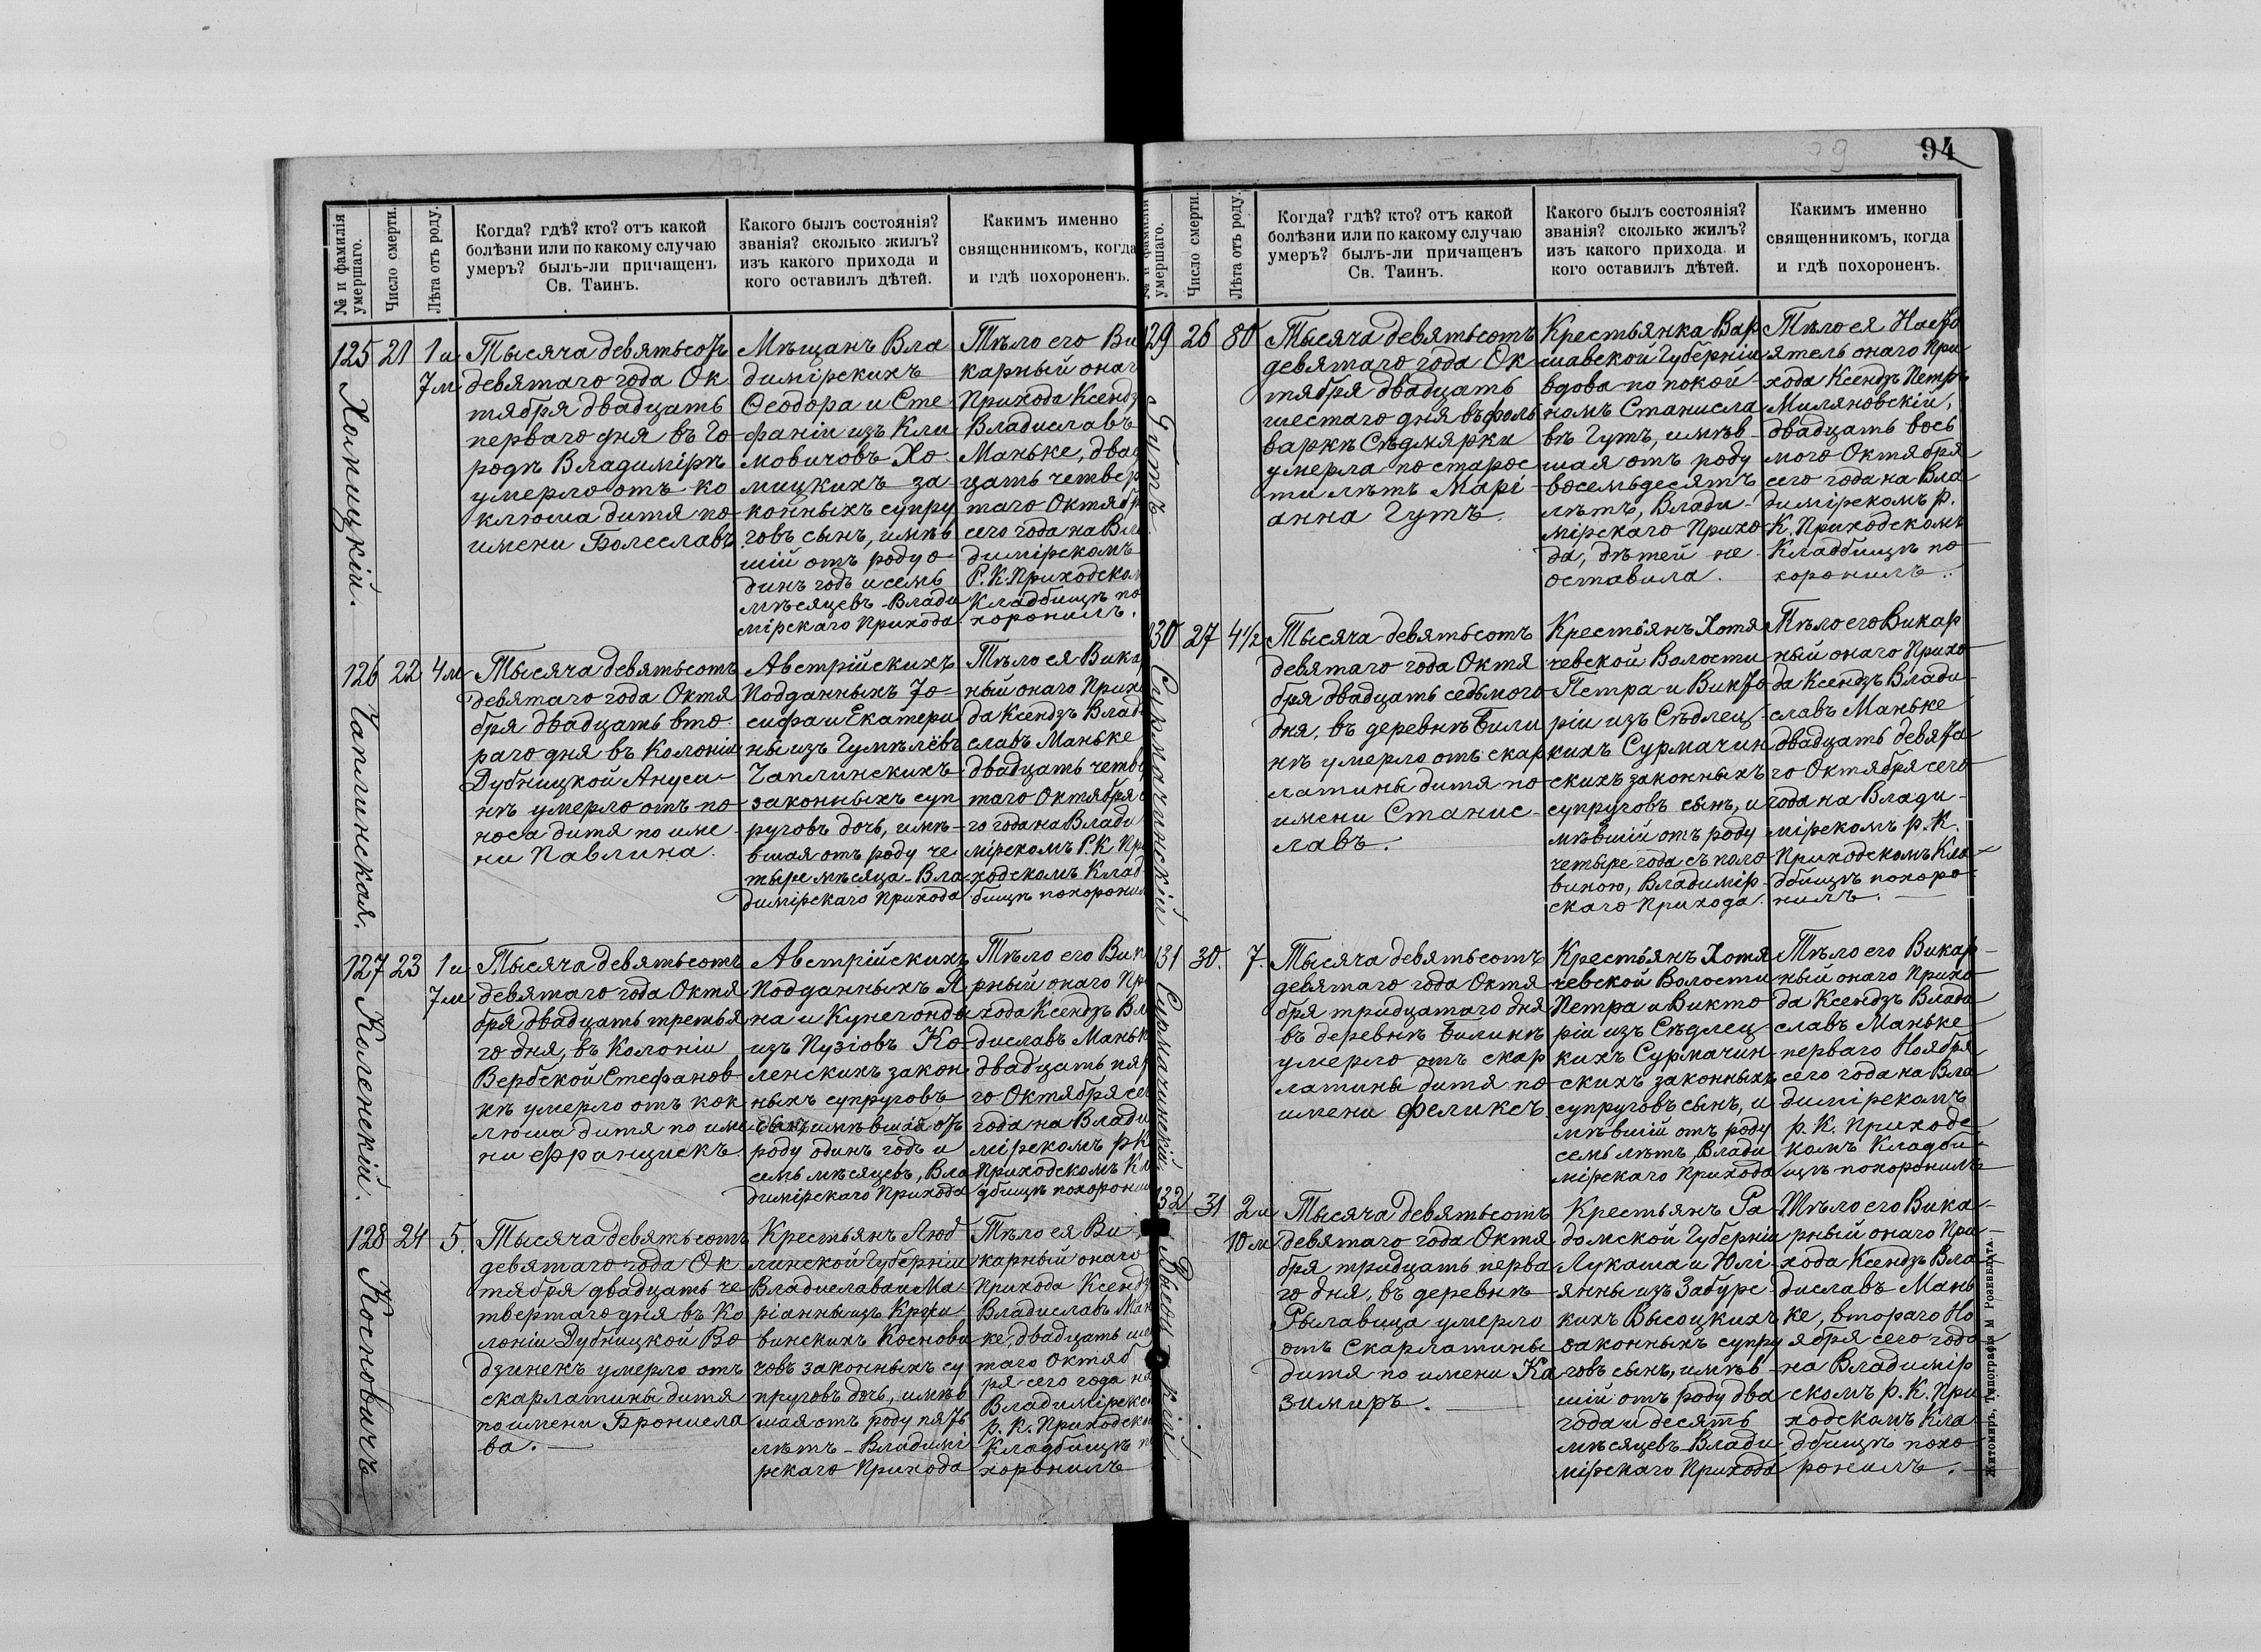 94
№ и фамилія умершаго.
Число смерти.
Лѣта отъ роду.
Когда? гдѣ? кто? отъ какой
болѣзни или по какому случаю
умеръ? былъ-ли причащенъ
Св. Таинъ.
Какого былъ состоянія?
званія? сколько жилъ?
изъ какого прихода и
кого оставилъ дѣтей.
Какимъ именно
священникомъ, когда
и гдѣ похороненъ.
125
Хомицкій.
21
1 и
7 м
Тысяча девятьсотъ
девятаго года Ок
тября двадцать
перваго дня въ Го
родѣ Владимірѣ
умерло отъ ко
клюша дитя по
имени Болеславъ
Мѣщанъ Вла
димірскихъ
Ѳеодора и Сте
фаніи изъ Кли
мовичовъ Хо
мицкихъ за
конныхъ супру
говъ сынъ, имѣв
шій отъ роду о
динъ годъ и семь
мѣсяцевъ Влади
мірскаго Прихода
Тѣло его Ви
карный онаг
Прихода Ксендз
Владиславъ
Маньке, двад
цать четвер
таго Октябр
сего года на Вла
димірскомъ
Р. К. Приходском
Кладбищѣ по
хоронилъ.
126
Чаплинская.
22
4 м
Тысяча девятьсотъ
девятаго года Октя
бря двадцать вто
раго дня въ Колоніи
ДубницкойАнуси
нѣ умерло отъ по
носа дитя по име
ни Павлина.
Австрійскихъ
Подданныхъ Іо
сифа и Екатери
ны изъ Гумѣлёвъ
Чаплинскихъ
законныхъ суп
руговъ дочь, имѣ
вшая отъ роду че
тыре мѣсяца Вла
димірскаго Прихода
Тѣло ея Вика
ный онаго Прихо
да Ксендзъ Влад
славъ Маньке
двадцать четв
таго Октября
го года на Влади
мірскомъ Р. К. Пр
ходскомъ Клад
бищѣ похоронил
127
Коленскій.
23
1 и
7 м
Тысяча девятьсотъ
девятаго года Октя
бря двадцать третья
го дня, въ Колоніи
Вербской Стефанов
кѣ умерло отъ кок
люша дитя по име
ни Францискъ.
Австрійскихъ
Подданныхъ Я
на и Кунегонды
изъ Пузіовъ Ко
ленскихъ закон
ныхъ супруговъ
сынъ, имѣвшій отъ
роду одинъ годъ и
семь мѣсяцевъ, Вла
димірскаго Прихода
Тѣло его Вик
рный онаго Пр
хода Ксендзъ Вл
диславъ Маньк
двадцать пят
го Октября се
года на Влади
мірскомъ р К
Приходскомъ Кл
дбищѣ похорони
128
Косновичъ
24
5.
Тысяча девятьсотъ
девятаго года Ок
тября двадцать че
твертаго дня въ Ко
лоніи Дубницкой Во
дзинекъ умерло отъ
скарлатины дитя
по имени Брониела
ва.
Крестьянъ Люб
линской Губерніи
Владислава и Ма
ріанны изъ Кржи
винскихъ Коснови
човъ законныхъ су
пруговъ дочь, имѣв
шая отъ роду пять
лѣтъ Владимі
рскаго Прихода
Тѣло ея Ви
карный онаго
Прихода Ксендз
Владиславъ Ман
ке, двадцать ше
таго Октяб
ря сего года на
Владимірско
р. К. Приходско
Кладбищѣ п
хоронилъ
№ и фамилія умершаго.
Число смерти.
Лѣта отъ роду.
Когда? гдѣ? кто? отъ какой
болѣзни или по какому случаю
умеръ? былъ-ли причащенъ
Св. Таинъ.
Какого былъ состоянія?
званія? сколько жилъ?
изъ какого прихода и
кого оставилъ дѣтей.
Какимъ именно
священникомъ, когда
и гдѣ похороненъ.
129
Гутъ.
26
80
Тысяча девятьсотъ
девятаго года Ок
тября двадцать
шестаго дня въ фоль
варкѣ Сѣдмярки
умерла по старос
ти лѣтъ Марі
анна Гутъ.
Крестьянка Вар
шавской Губерніи
вдова по покой
номъ Станисла
вѣ Гутъ, имѣв
шая отъ роду
восемьдесятъ
лѣтъ, Влади
мірскаго Прихо
да, дѣтей не
оставила.
Тѣло ея Насто
ятель онаго При
хода Ксендзъ Петръ
Миляновскій,
двадцать вось
мого Октября
сего года на Вла
димірскомъ р.
К. Приходскомъ
Кладбищѣ по
хоронилъ.
130
Сурмачинскій
27
4 1/2
Тысяча девятьсотъ
девятаго года Октя
бря двадцать седьмого
дня, въ деревнѣ Били
нѣ умерло отъ скар
латины дитя по
имени Станис
лавъ.
Крестьянъ Хотя
чевской Волости
Петра и Викто
ріи изъ Сѣдлец
кихъ Сурмачин
скихъ законныхъ
супруговъ сынъ, и
мѣвшій отъ роду
четыре года съ поло
виною, Владимір
скаго Прихода.
Тѣло его Викар
ный онаго Прихо
да Ксендзъ Влади
славъ Маньке
двадцать девята
го Октября сего
года на Влади
мірскомъ р. К.
Приходскомъ Кла
дбищѣ похоро
нилъ.
131
Сурмачинскій
30.
7.
Тысяча девятьсотъ
девятаго года Октя
бря тридцатаго дня
въ деревнѣ Билинѣ
умерло отъ скар
латины дитя по
имени Феликсъ.
Крестьянъ Хотя
чевской Волости
Петра и Викто
ріи изъ Сѣдлец
кихъ Сурмачин
скихъ законныхъ
супруговъ сынъ, и
мѣвшій отъ роду
семь лѣтъ, Влади
мірскаго Прихода
Тѣло его Викар
ный онаго Прихо
да Ксендзъ Влади
славъ Маньке
перваго Ноября
сего года на Вла
димірскомъ
р. К. Приходс
комъ Кладби
щѣ похоронилъ
132
Высоцкій.
31
2 и
10 м
Тысяча девятьсотъ
девятаго года Октя
бря тридцать перва
го дня, въ деревнѣ
Рылавица умерло
отъ Скарлатины
дитя по имени Ка
зимиръ.
Крестьянъ Ра
домской Губерніи
Лукаша и Юлі
янны изъ Забурс
кихъ Высоцкихъ
законныхъ супру
говъ сынъ, имѣв
шій отъ роду два
года и десять
мѣсяцевъ Влади
мірскаго Прихода
Тѣло его Вика
рный онаго При
хода Ксендзъ Вла
диславъ Мань
ке, втораго Но
ября сего года
на Владимір
скомъ р. К. При
ходскомъ Кла
дбищѣ похо
ронилъ.
Житомиръ, Типографія М Розенблата.